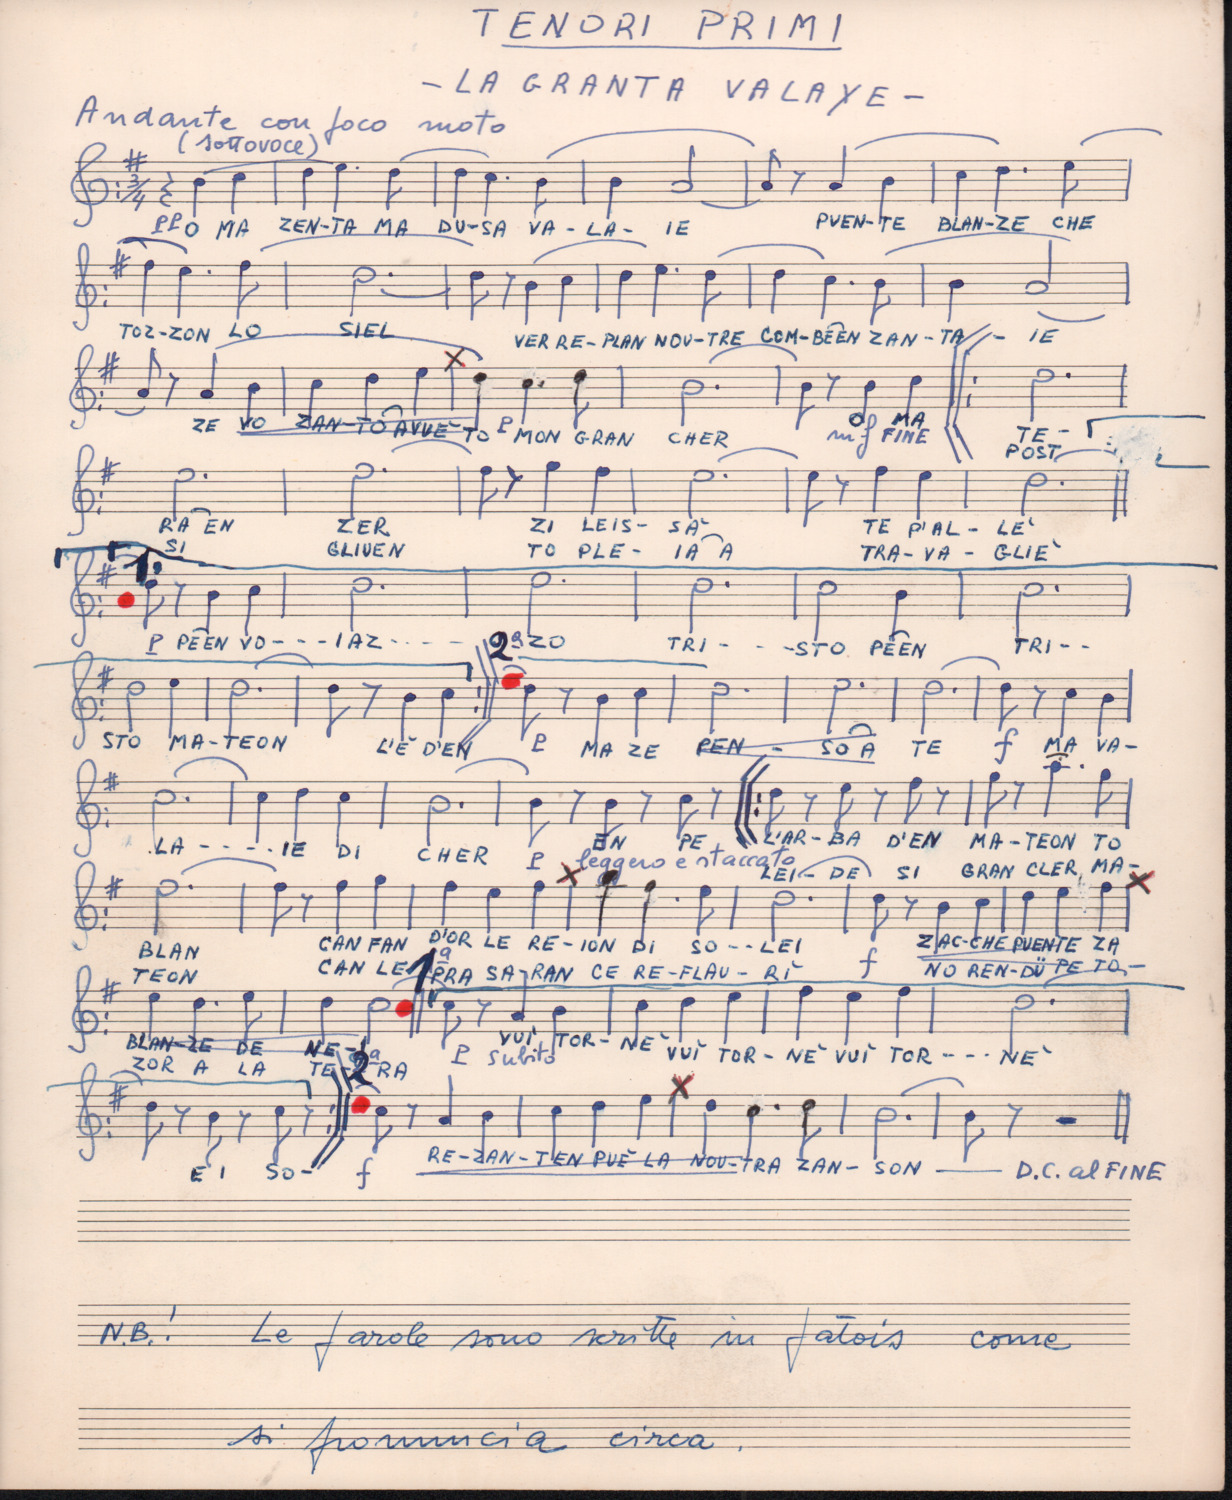 TENORI PRIMI
- LA GRANTA VALAYE -
Andante con poco moto
(sottovoce)
3/4
PP O MA ZEN-TA MA DU-SA VA-LA- IE PUEN-TE BLAN-ZE CHE
TOZ-ZON LO SIEL VER RE-PLAN NOU-TRE COM-BËEN ZAN-TA - IE
ZE VO ZAN-TO AVVE-TO P MON GRAN CHER O MA TE-
mf FINE POST
RA EN ZER ZI LEIS- SA' TE P'AL- LE'
SI GLIUEN TO PLE- IA A TRA-VA-GLIE'
1ª
P PËEN VO---IAZ---- ZO TRI---STO PËEN TRI--
2ª
STO MA-TEON L'E' D'EN P MA ZE PEN - SO A TE f MA VA-
LA----IE DI CHER P EN PE L'AR-BA D'EN MA-TEON TO
leggero e staccato LEI-DE SI GRAN CLER, MA-
BLAN CAN FAN D'OR LE RE-ION DI SO--LEI f ZAC-CHE PUENTE ZA
TEON CAN LE PRA SA-RAN CE RE-FLAU-RI' NO REN-DÜ PE TO-
1ª
BLAN-ZE DE NE- VUI' TOR-NE' VUI' TOR-NE' VUI' TOR---NE'
ZOR A LA TE-RA P subito
2ª
E I SO- f RE-ZAN-TEN PUE' LA NOU-TRA ZAN-SON D.C. al FINE
N.B.! Le parole sono scritte in patois come
si pronuncia circa.